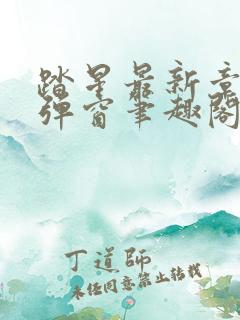 踏星最新章
弹窗笔趣阁
丁道师
未经同意禁止转载